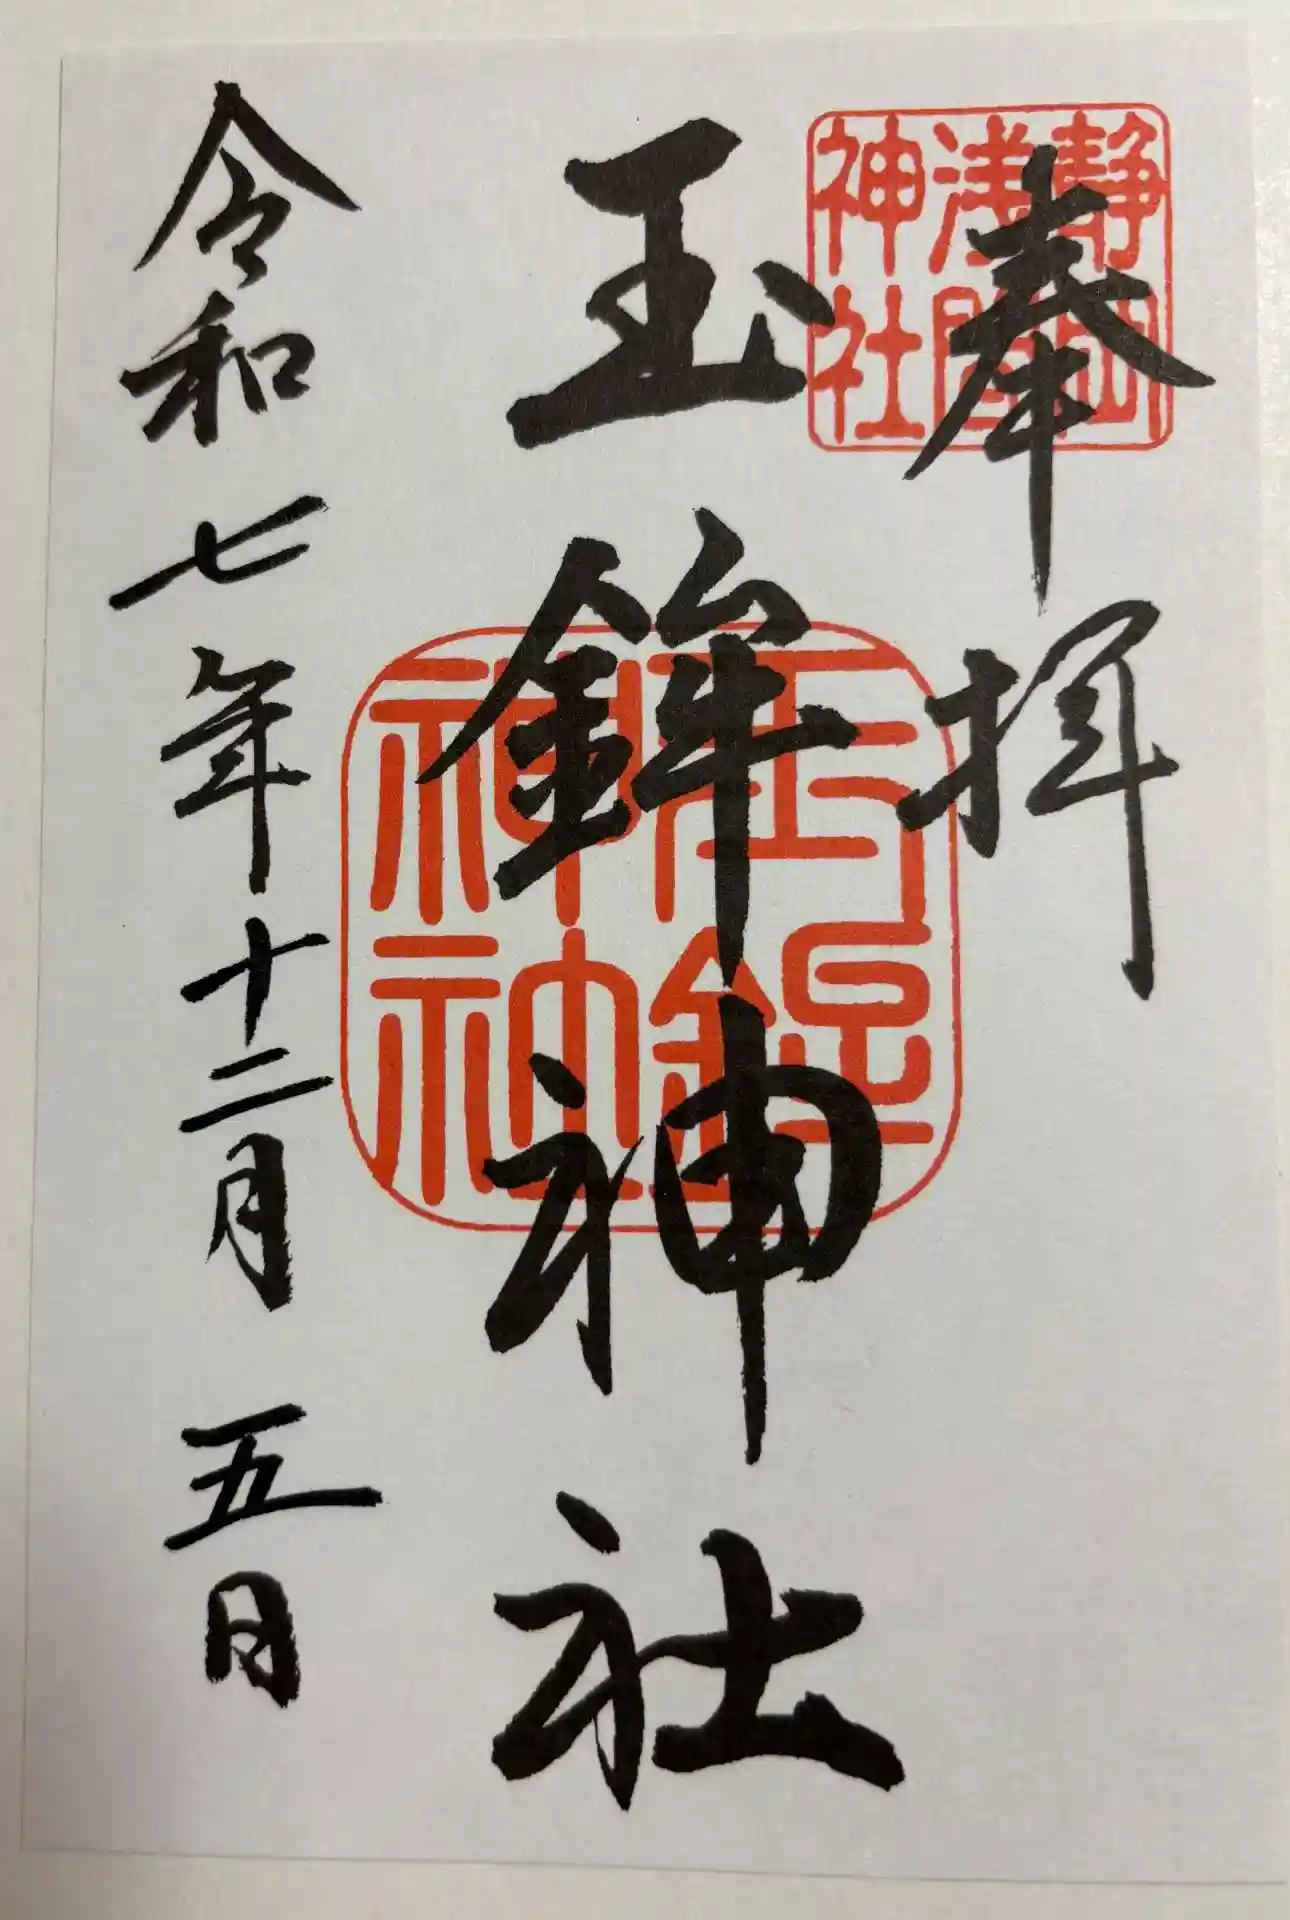 奉拝
静岡
浅間
神社
玉鉾神社
玉鉾
神社
令和七年十二月五日